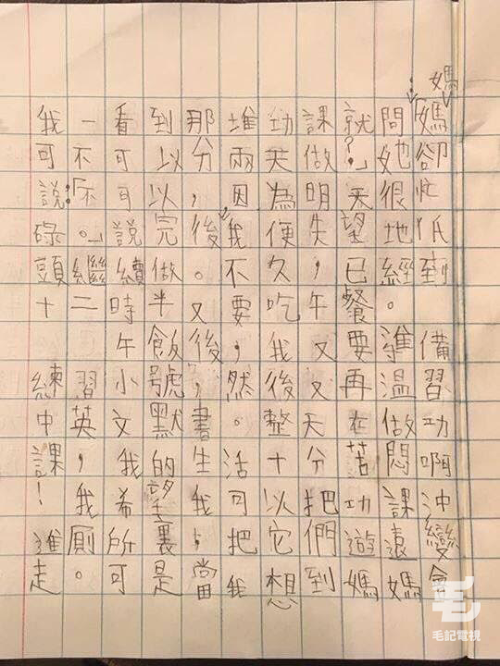 媽
我一看到那堆功課就問「媽
可不可以分兩天做?」她卻
說:「不可以,因為明天很忙
碌。」說完後我便失望地低
頭繼續做。不久,已經到
十二時半又要吃午餐。
午飯後,我又要準備
練習小號,然後又再溫習
中英文默書。整天在做功
課,我的生活十分苦悶啊
!我希望我可以把功課沖
進廁所裏,把它們遊遠變
走。可是當我想到媽媽會
毛記電視